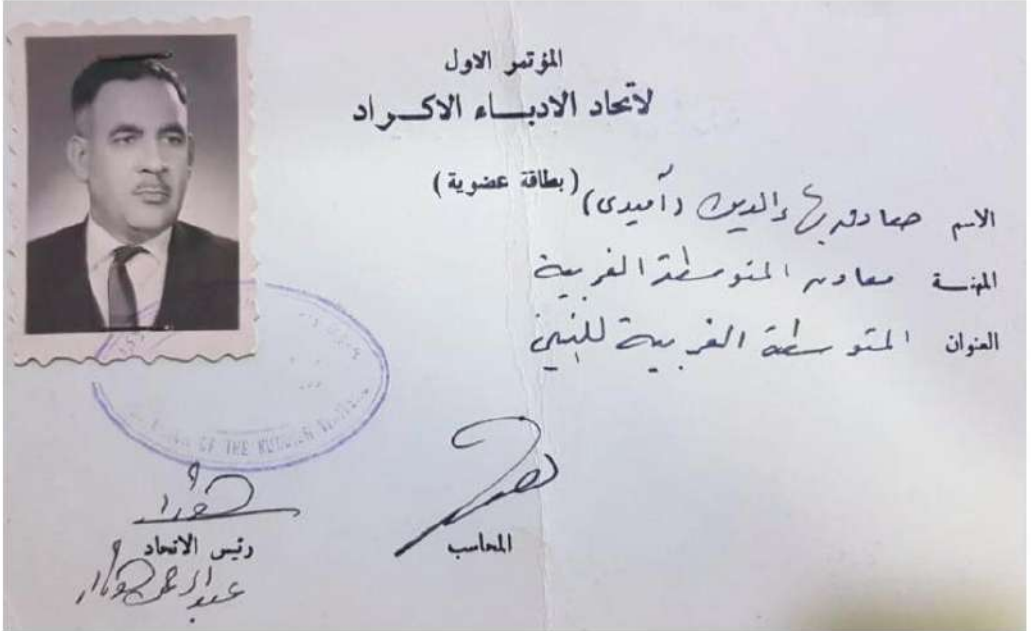 المؤتمر الاول
لاتحاد الادبـــاء الاكــراد
(بطاقة عضوية)
الاسم صادق بهاءالدين (آميدى)
المهنـة معاون المتوسطة الغربية
العنوان المتوسطة الغربية للبنين
OF THE KURDISH WRITERS
المحاسب
رئيس الاتحاد
عبدالرحمن